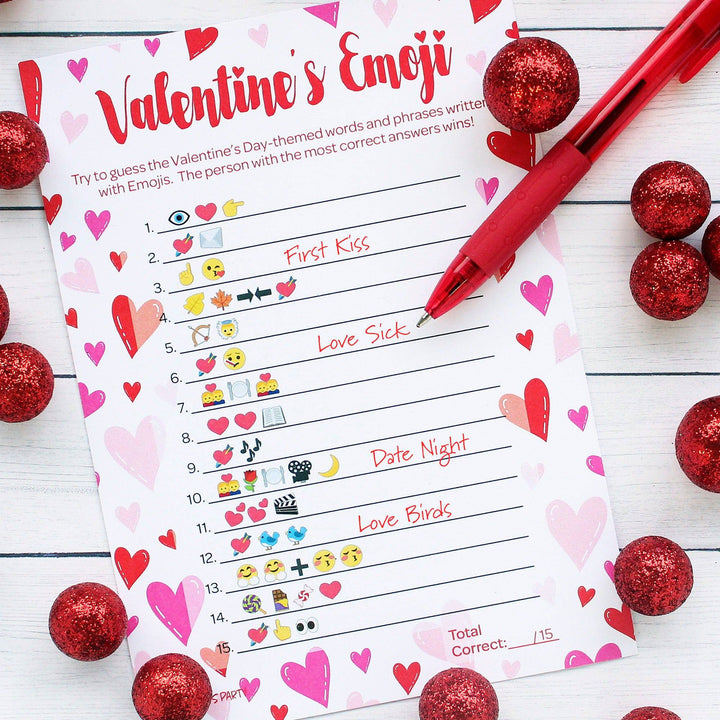 Valentine's Emoji
Try to guess the Valentine's Day-themed words and phrases written
with Emojis. The person with the most correct answers wins!
1.
2.
3. First Kiss
4.
5.
6. Love Sick
7.
8.
9.
10. Date Night
11.
12. Love Birds
13.
14.
15.
Total
Correct: /15
PARTY